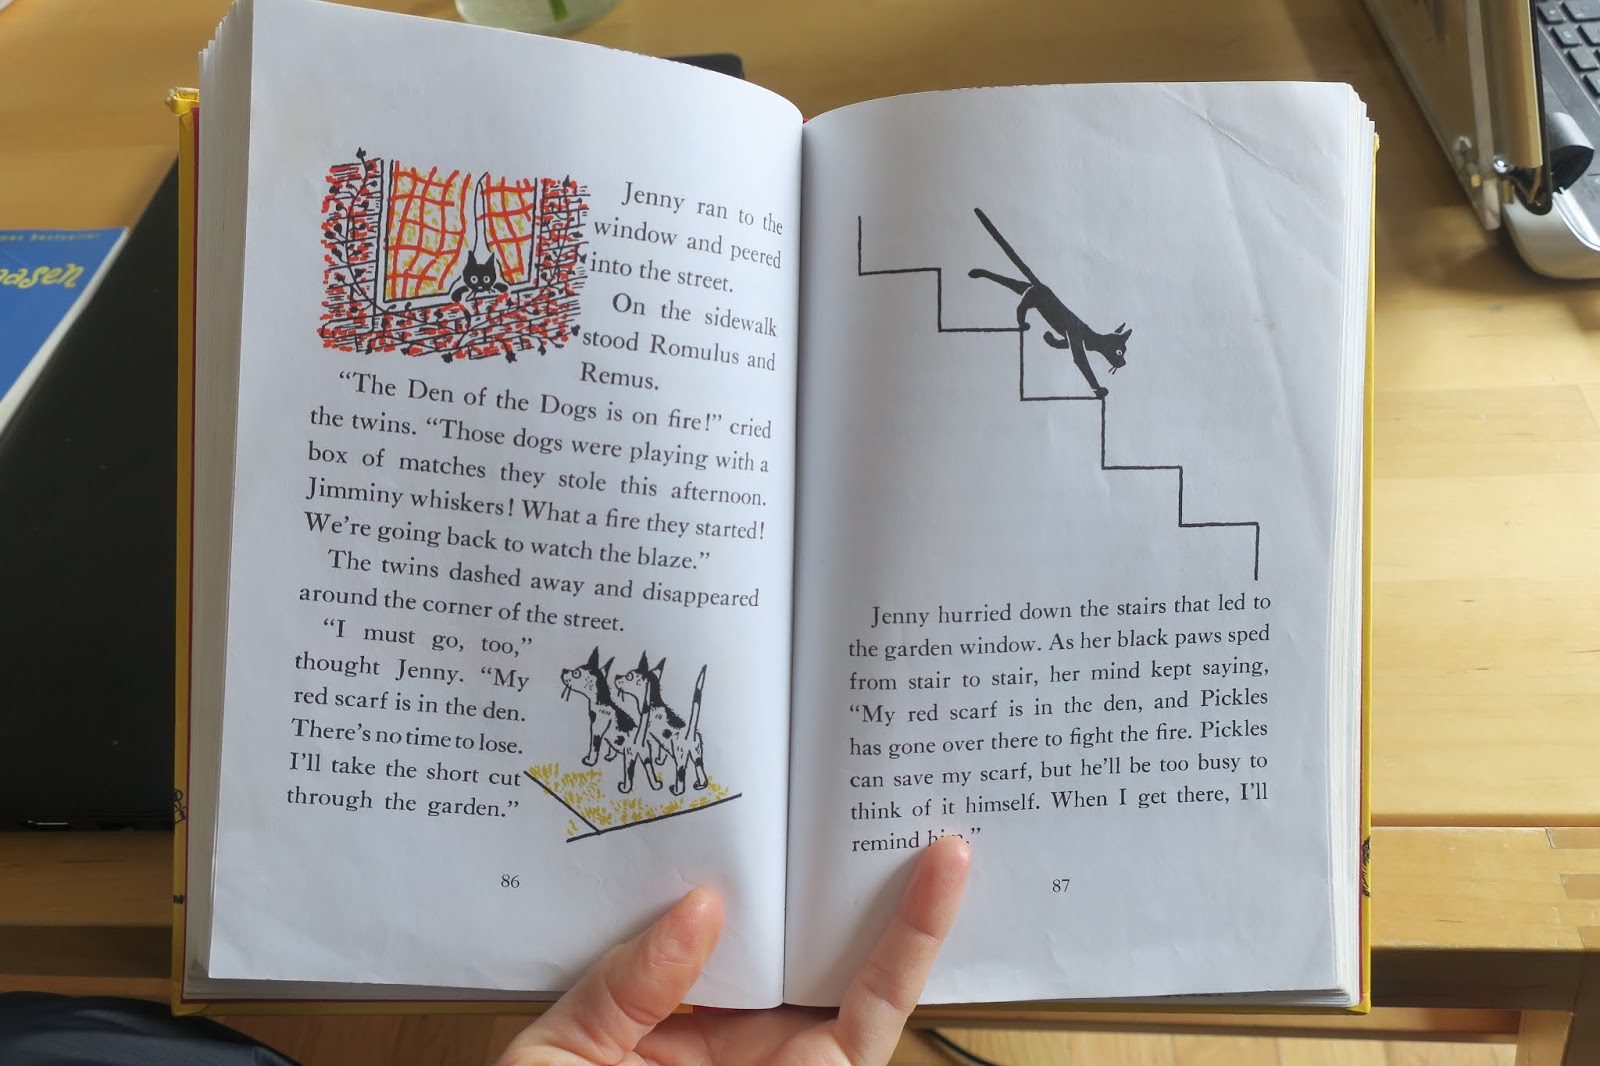 aasen
Jenny ran to the
window and peered
into the street.
On the sidewalk
stood Romulus and
Remus.
“The Den of the Dogs is on fire!” cried
the twins. “Those dogs were playing with a
box of matches they stole this afternoon.
Jimminy whiskers! What a fire they started!
We’re going back to watch the blaze.”
The twins dashed away and disappeared
around the corner of the street.
“I must go, too,”
thought Jenny. “My
red scarf is in the den.
There’s no time to lose.
I’ll take the short cut
through the garden.”
86
Jenny hurried down the stairs that led to
the garden window. As her black paws sped
from stair to stair, her mind kept saying,
“My red scarf is in the den, and Pickles
has gone over there to fight the fire. Pickles
can save my scarf, but he’ll be too busy to
think of it himself. When I get there, I’ll
remind him.”
87